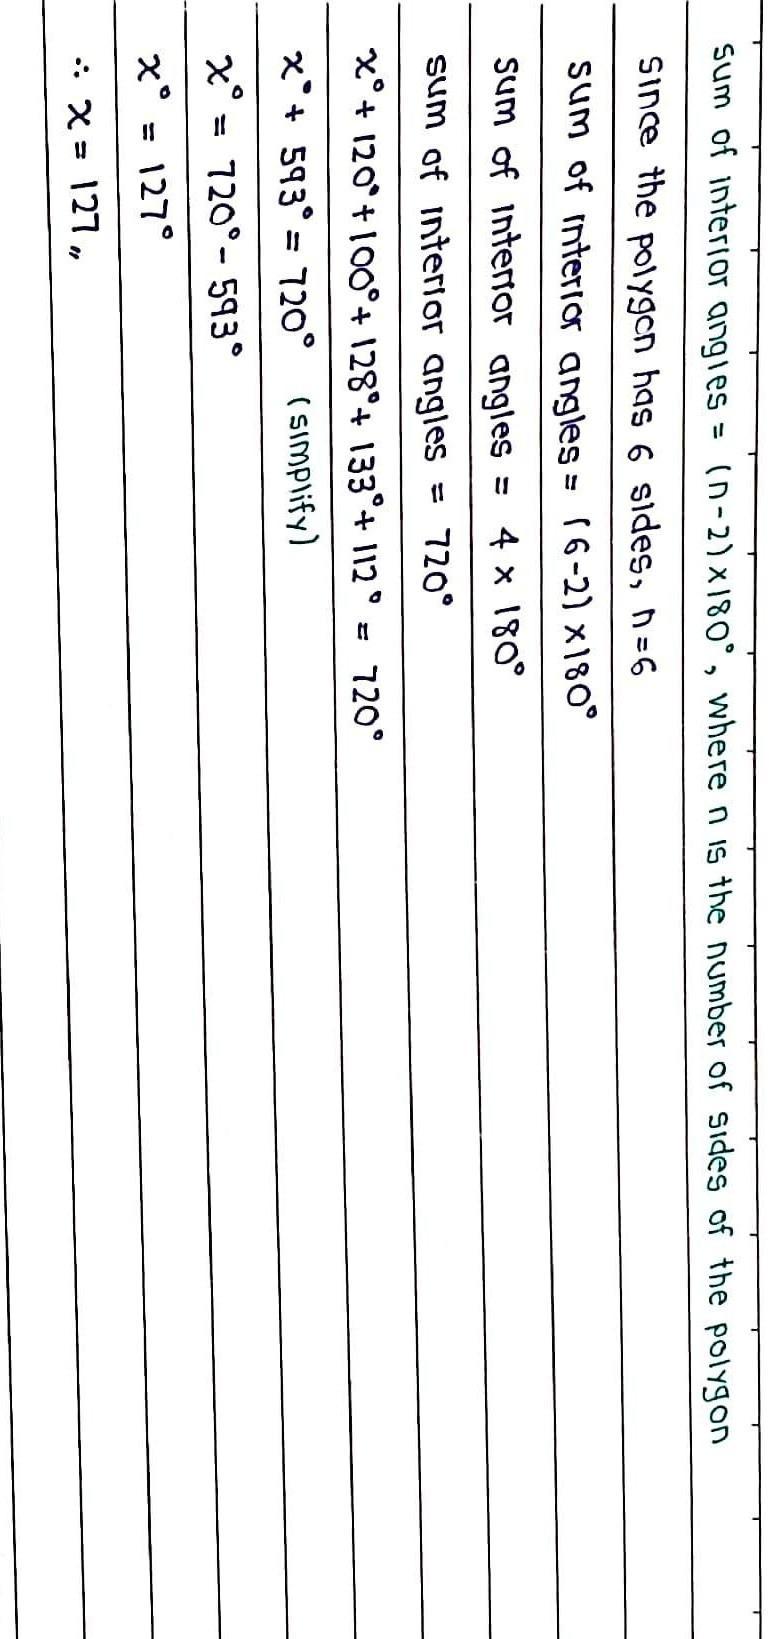 sum of interior angles = (n-2)×180°, where n is the number of sides of the polygon
since the polygon has 6 sides, n=6
sum of interior angles = (6-2)×180°
sum of interior angles = 4 × 180°
sum of interior angles = 720°
x° + 120° + 100° + 128° + 133° + 112° = 720°
x° + 593° = 720° (simplify)
x° = 720° - 593°
x° = 127°
∴ x = 127 〃